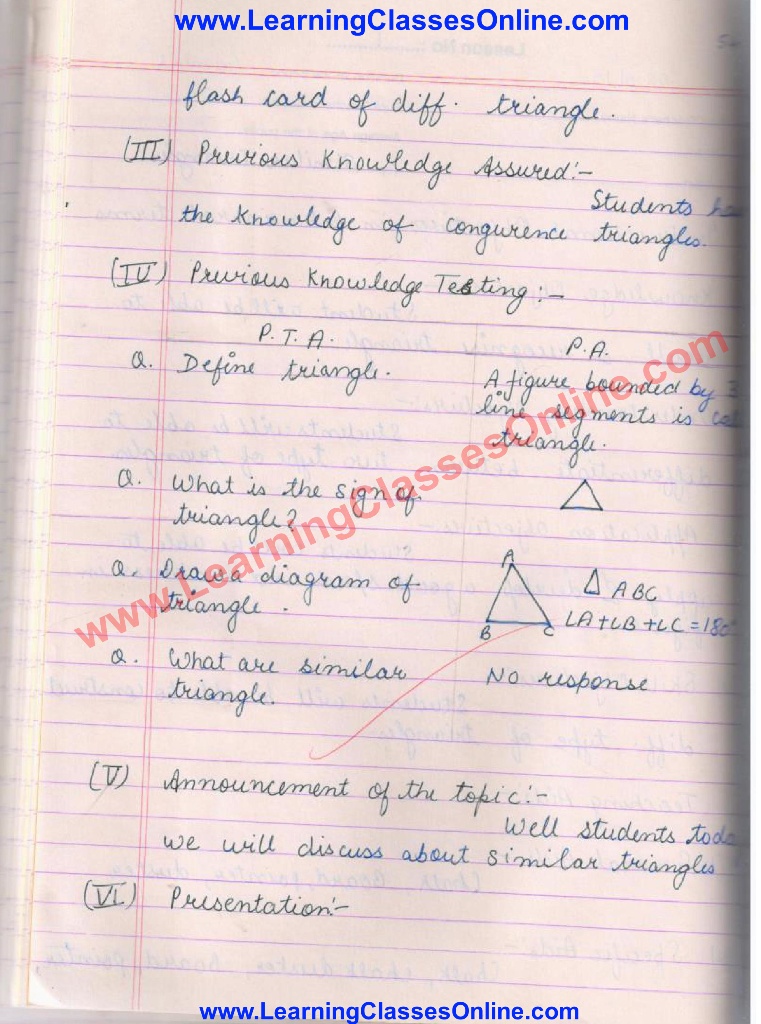 www.LearningClassesOnline.com
flash card of diff. triangle.
(III) Previous Knowledge Assured:-
Students
the knowledge of congurence triangles.
(IV) Previous Knowledge Testing:-
P.T.A. P.A.
Q. Define triangle. A figure bounded by 3
line segments is
triangle.
Q. What is the sign of △
triangle?
Q. Draw a diagram of A △ ABC
triangle. B C ∠A+∠B+∠C=180°
Q. What are similar No response
triangle.
(V) Announcement of the topic:-
Well students
we will discuss about similar triangles
(VI) Presentation:-
www.LearningClassesOnline.com
www.LearningClassesOnline.com